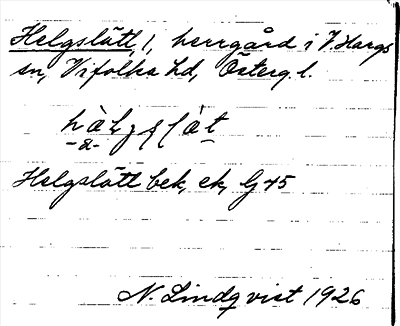 Helgslätt, 1, herrgård i V. Hargs
sn, Vifolka hd, Österg. l.
Helgslätt bek, ek, G 45
N. Lindqvist 1926